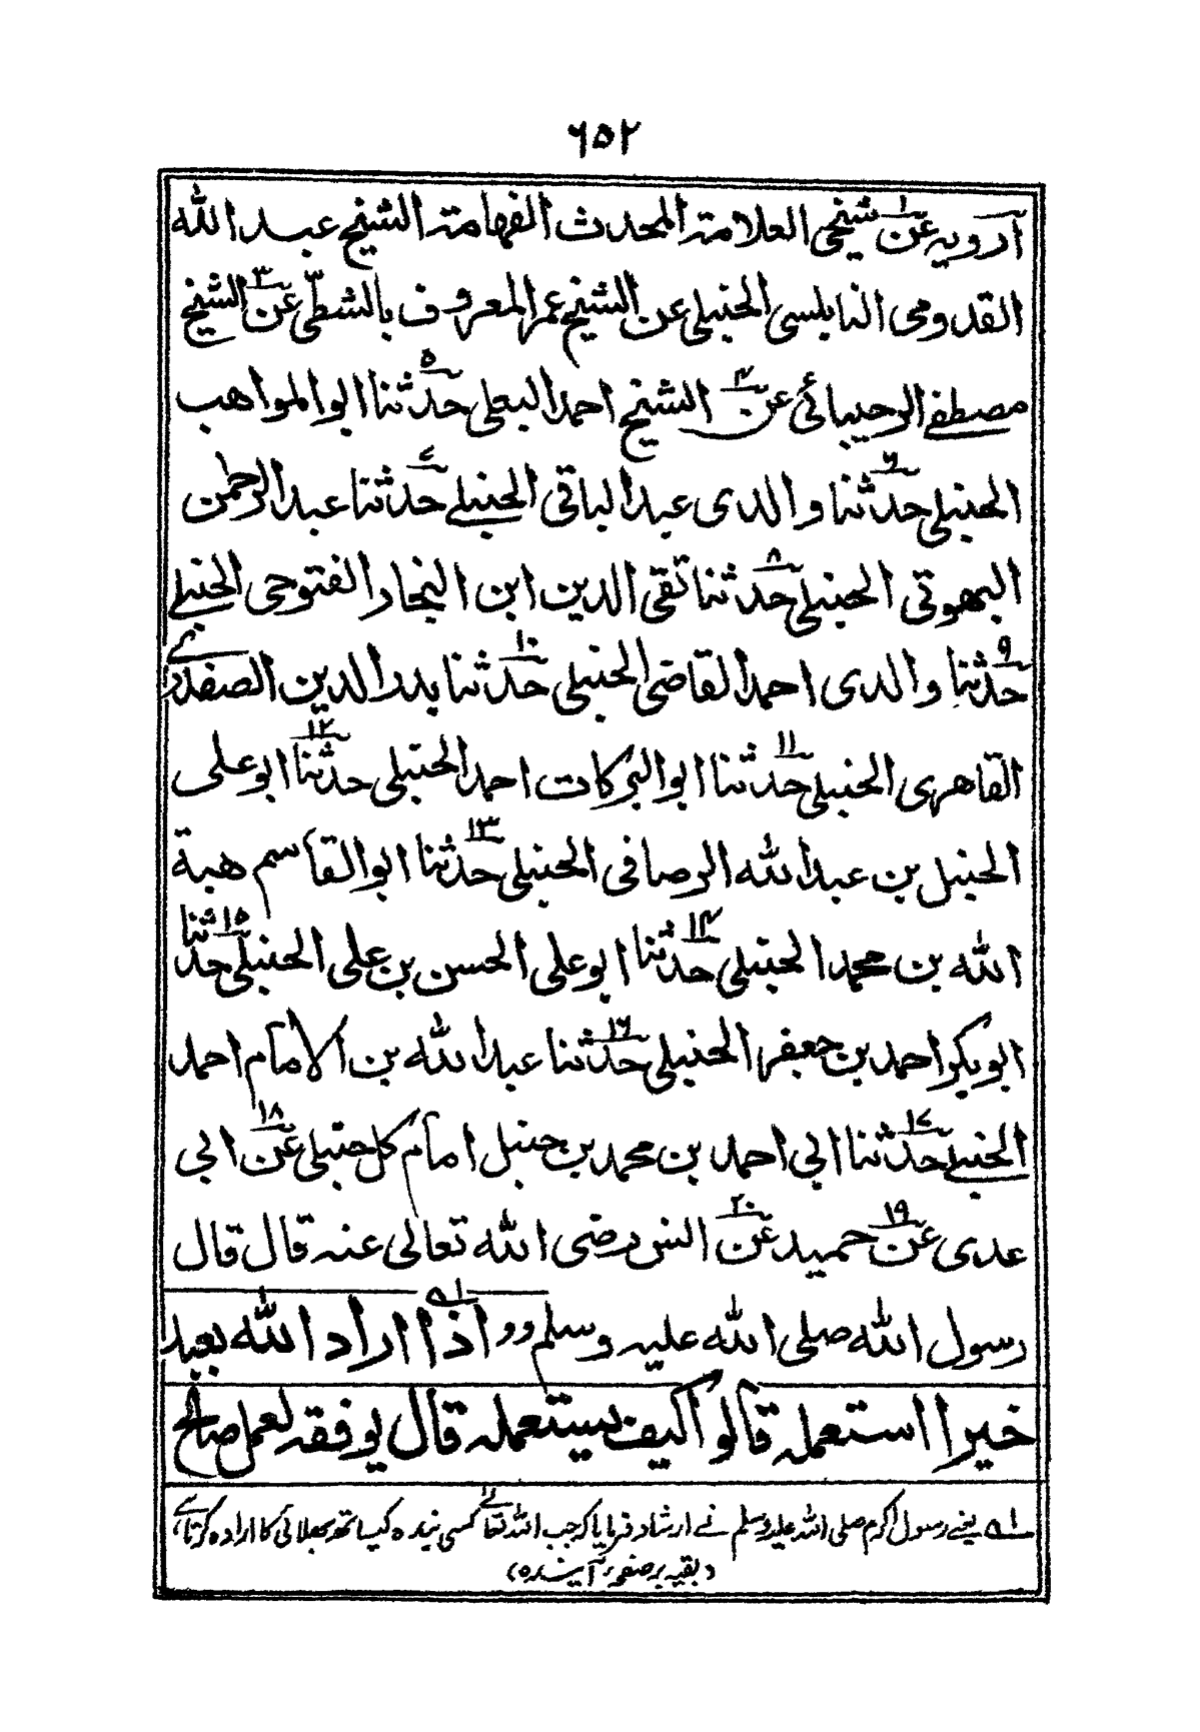 ٦٥٢
أرويه عن١ شيخي العلامة المحدث الفهامة الشيخ عبد الله
القدومى النابلسى الحنبلى عن٢ الشيخ عمر المعروف بالشطّى عن٣ الشيخ
مصطفے الرحيبائى عن٤ الشيخ احمد البعلى حدثنا٥ ابو المواهب
الحنبلى حدثنا٦ والدى عبد الباقى الحنبلے حدثنا٧ عبد الرحمن
البهوتى الحنبلى حدثنا٨ تقى الدين ابن النجار الفتوحى الحنبلے
حدثنا٩ والدى احمد القاضى الحنبلى حدثنا١٠ بدر الدين الصفدے
القاهرى الحنبلى حدثنا١١ ابو البركات احمد الحنبلى حدثنا١٢ ابو على
الحنبل بن عبد الله الرصافى الحنبلى حدثنا١٣ ابو القاسم هبة
الله بن محمد الحنبلى حدثنا١٤ ابو على الحسن بن على الحنبلى حدثنا١٥
ابو بكر احمد بن جعفر الحنبلى حدثنا١٦ عبد الله بن الامام احمد
الحنبلے حدثنا١٧ ابي احمد بن محمد بن حنبل امام كل حنبلى عن١٨ ابي
عدى عن١٩ حميد عن٢٠ انس رضى الله تعالى عنه قال قال
رسول الله صلى الله عليه وسلم وو اذا١ه اراد الله بعبد
خيرا استعمله قالوا كيف يستعمله قال يوفقه لعمل صالح
١ه یعنے رسول اکرم صلی اللہ علیہ وسلم نے ارشاد فرمایا کہ جب اللہ تعالےٰ کسی بندہ کیساتھ بھلائی کا ارادہ کرتا ہے،
(بقیہ بر صفحہ آئیندہ)